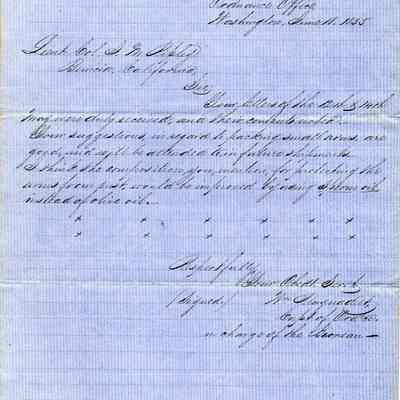 Ordnance Office
Washington, June 11. 1855.
Lieut. Col. J. W. Ripley
Benicia, California,
Sir
Your letters of the 12th & 14th
May were duly received, and their contents noted.
Your suggestions, in regard to packing small arms, are
good, and will be attended to in future shipments.
I think the composition you mention, for protecting the
arms from rust, would be improved by using Sperm oil
instead of olive oil.
x x x x x
x x x x x
Respectfully
Your Obdt. Servt.
(Signed) Wm. Maynadier
Capt. of Ord.
in charge of the Bureau